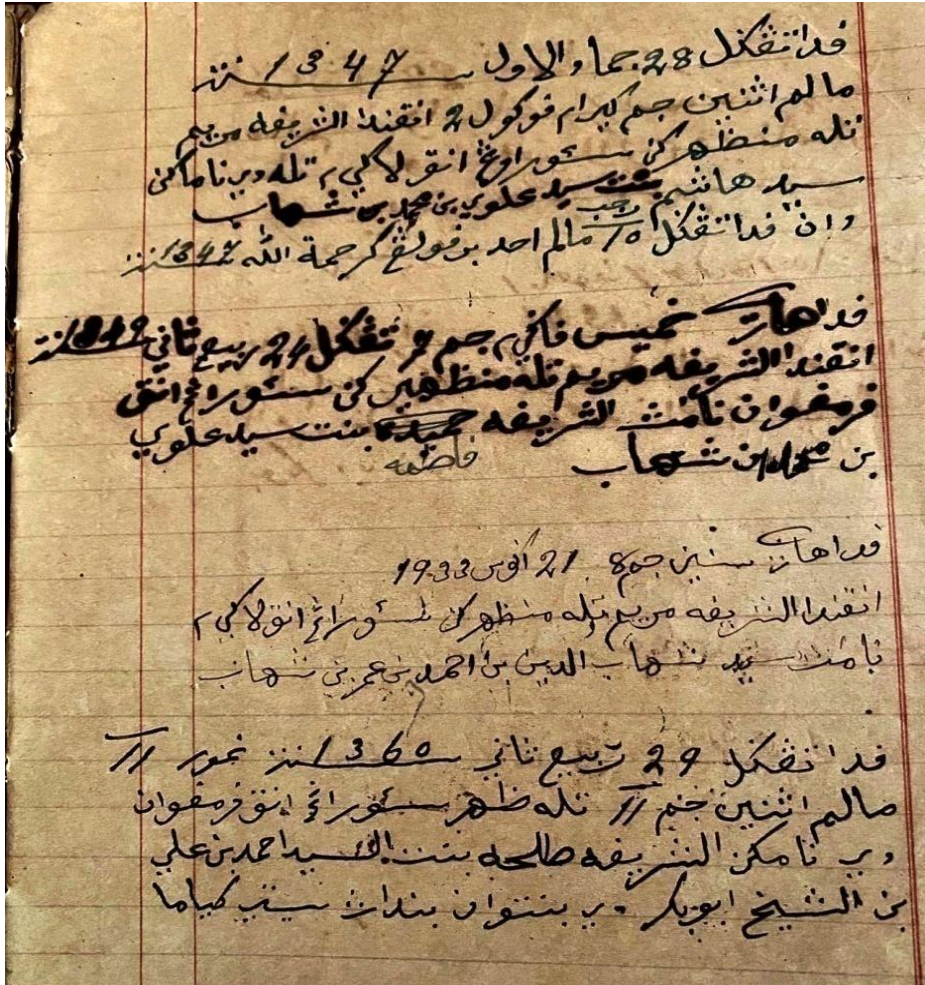 فدا تڠکل 28 جماد الاول سنة 1347
مالم اثنين جم کيرا٢ فوکول 2 اڠکندا الشريفه مريم
تله منظهرکن سئورڠ انق لاکي٢ تله دي نامأکن
سيد هاشم بنت سيد علوي بن محمد بن شهاب
دان فدا تڠکل 10 رجب مالم احد برفولڠ کرحمة الله سنة 1347
فدا هاري خميس فاکي جم 9 تڠکل 24 ربيع ثاني 1349 سنة
اڠکندا الشريفه مريم تله منظهيرکن سئورڠ انق
فرمفوان نامڽ الشريفه بنت سيد علوي
فاطمه
بن محمد بن شهاب
فدا هاري سنين جم 8 21 اکوس 1933
اڠکندا الشريفه مريم تله منظهرکن سئورڠ انق لاکي٢
نامڽ سيد شهاب الدين بن احمد بن عمر بن شهاب
فدا تڠکل 29 ربيع ثاني سنة 1360
مالم اثنين جم 11 تله ظهر سئورڠ انق فرمفوان
دي نامکن الشريفه صالحه بنت السيد احمد بن علي
بن الشيخ ابوبکر دي